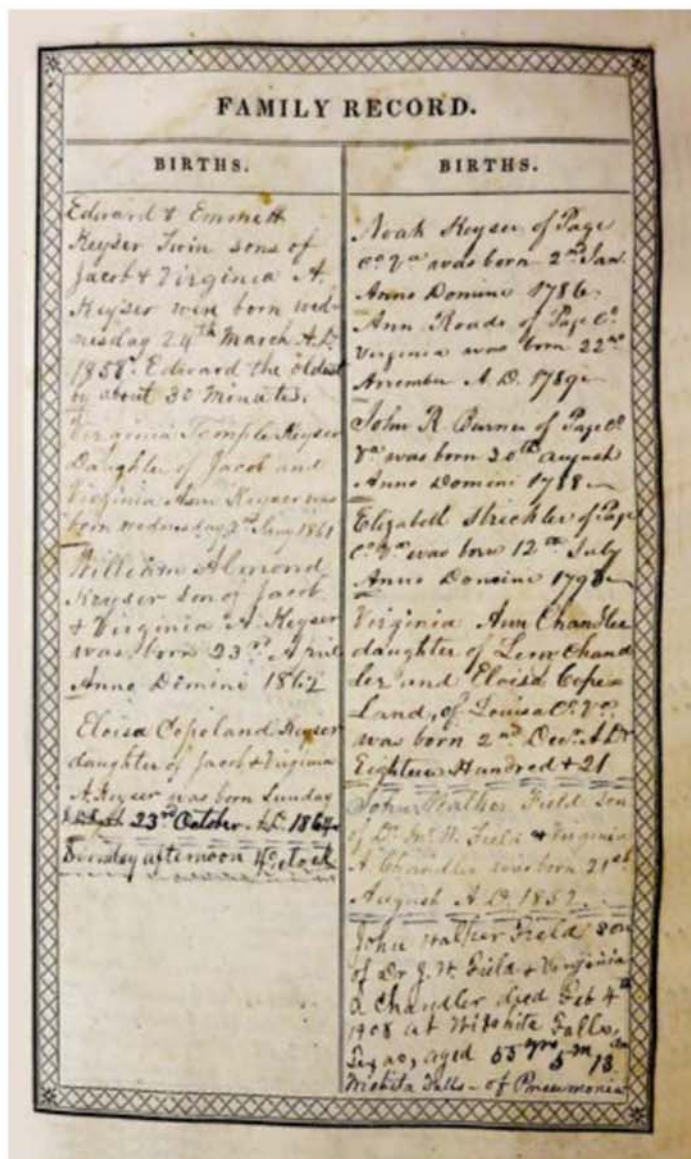 FAMILY RECORD.
BIRTHS.
Edward & Emmett
Keyser Twin sons of
Jacob & Virginia A.
Keyser were born wed-
nesday 24th March A.D.
1858. Edward the oldest
by about 30 Minutes.
Virginia Temple Keyser
Daughter of Jacob and
Virginia Ann Keyser was
born wednesday May 1861
William Almond
Keyser son of Jacob
& Virginia A. Keyser
was born 23rd April
Anno Domini 1862
Eloisa Copeland Keyser
daughter of Jacob & Virginia
A. Keyser was born Sunday
23rd October A.D. 1864
Sunday afternoon 4 oclock
BIRTHS.
Noah Keyser of Page
Co. Va was born 2nd Jan
Anno Domini 1786
Ann Roads of Page Co.
Virginia was born 22nd
November A.D. 1789
John R Burner of Page Co
Va was born 20th august
Anno Domini 1788
Elizabeth Strickler of Page
Co. Va was born 12th July
Anno Domini 1798
Virginia Ann Chandler
daughter of Chand
ler and Eloisa Cope=
Land, of Louisa Co. Va.
was born 2nd Decr. A.D.
Eighteen Hundred & 21
John Walker Field son
of Dr. Jno. W. Field & Virginia
A. Chandler was born 21st
August A.D. 1852.
John Walker Field son
of Dr J. W. Field & Virginia
a Chandler died Feb 4th
1908 at Wichita Falls,
Texas, aged 55 yrs 5 m 13 da
Wichita Falls - of Pneumonia